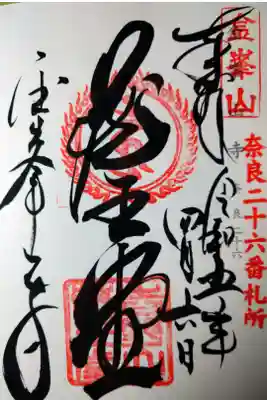 金峯山
奈良二十六番札所
奉拝
令和五年
四月六日
蔵王堂
金峯山寺